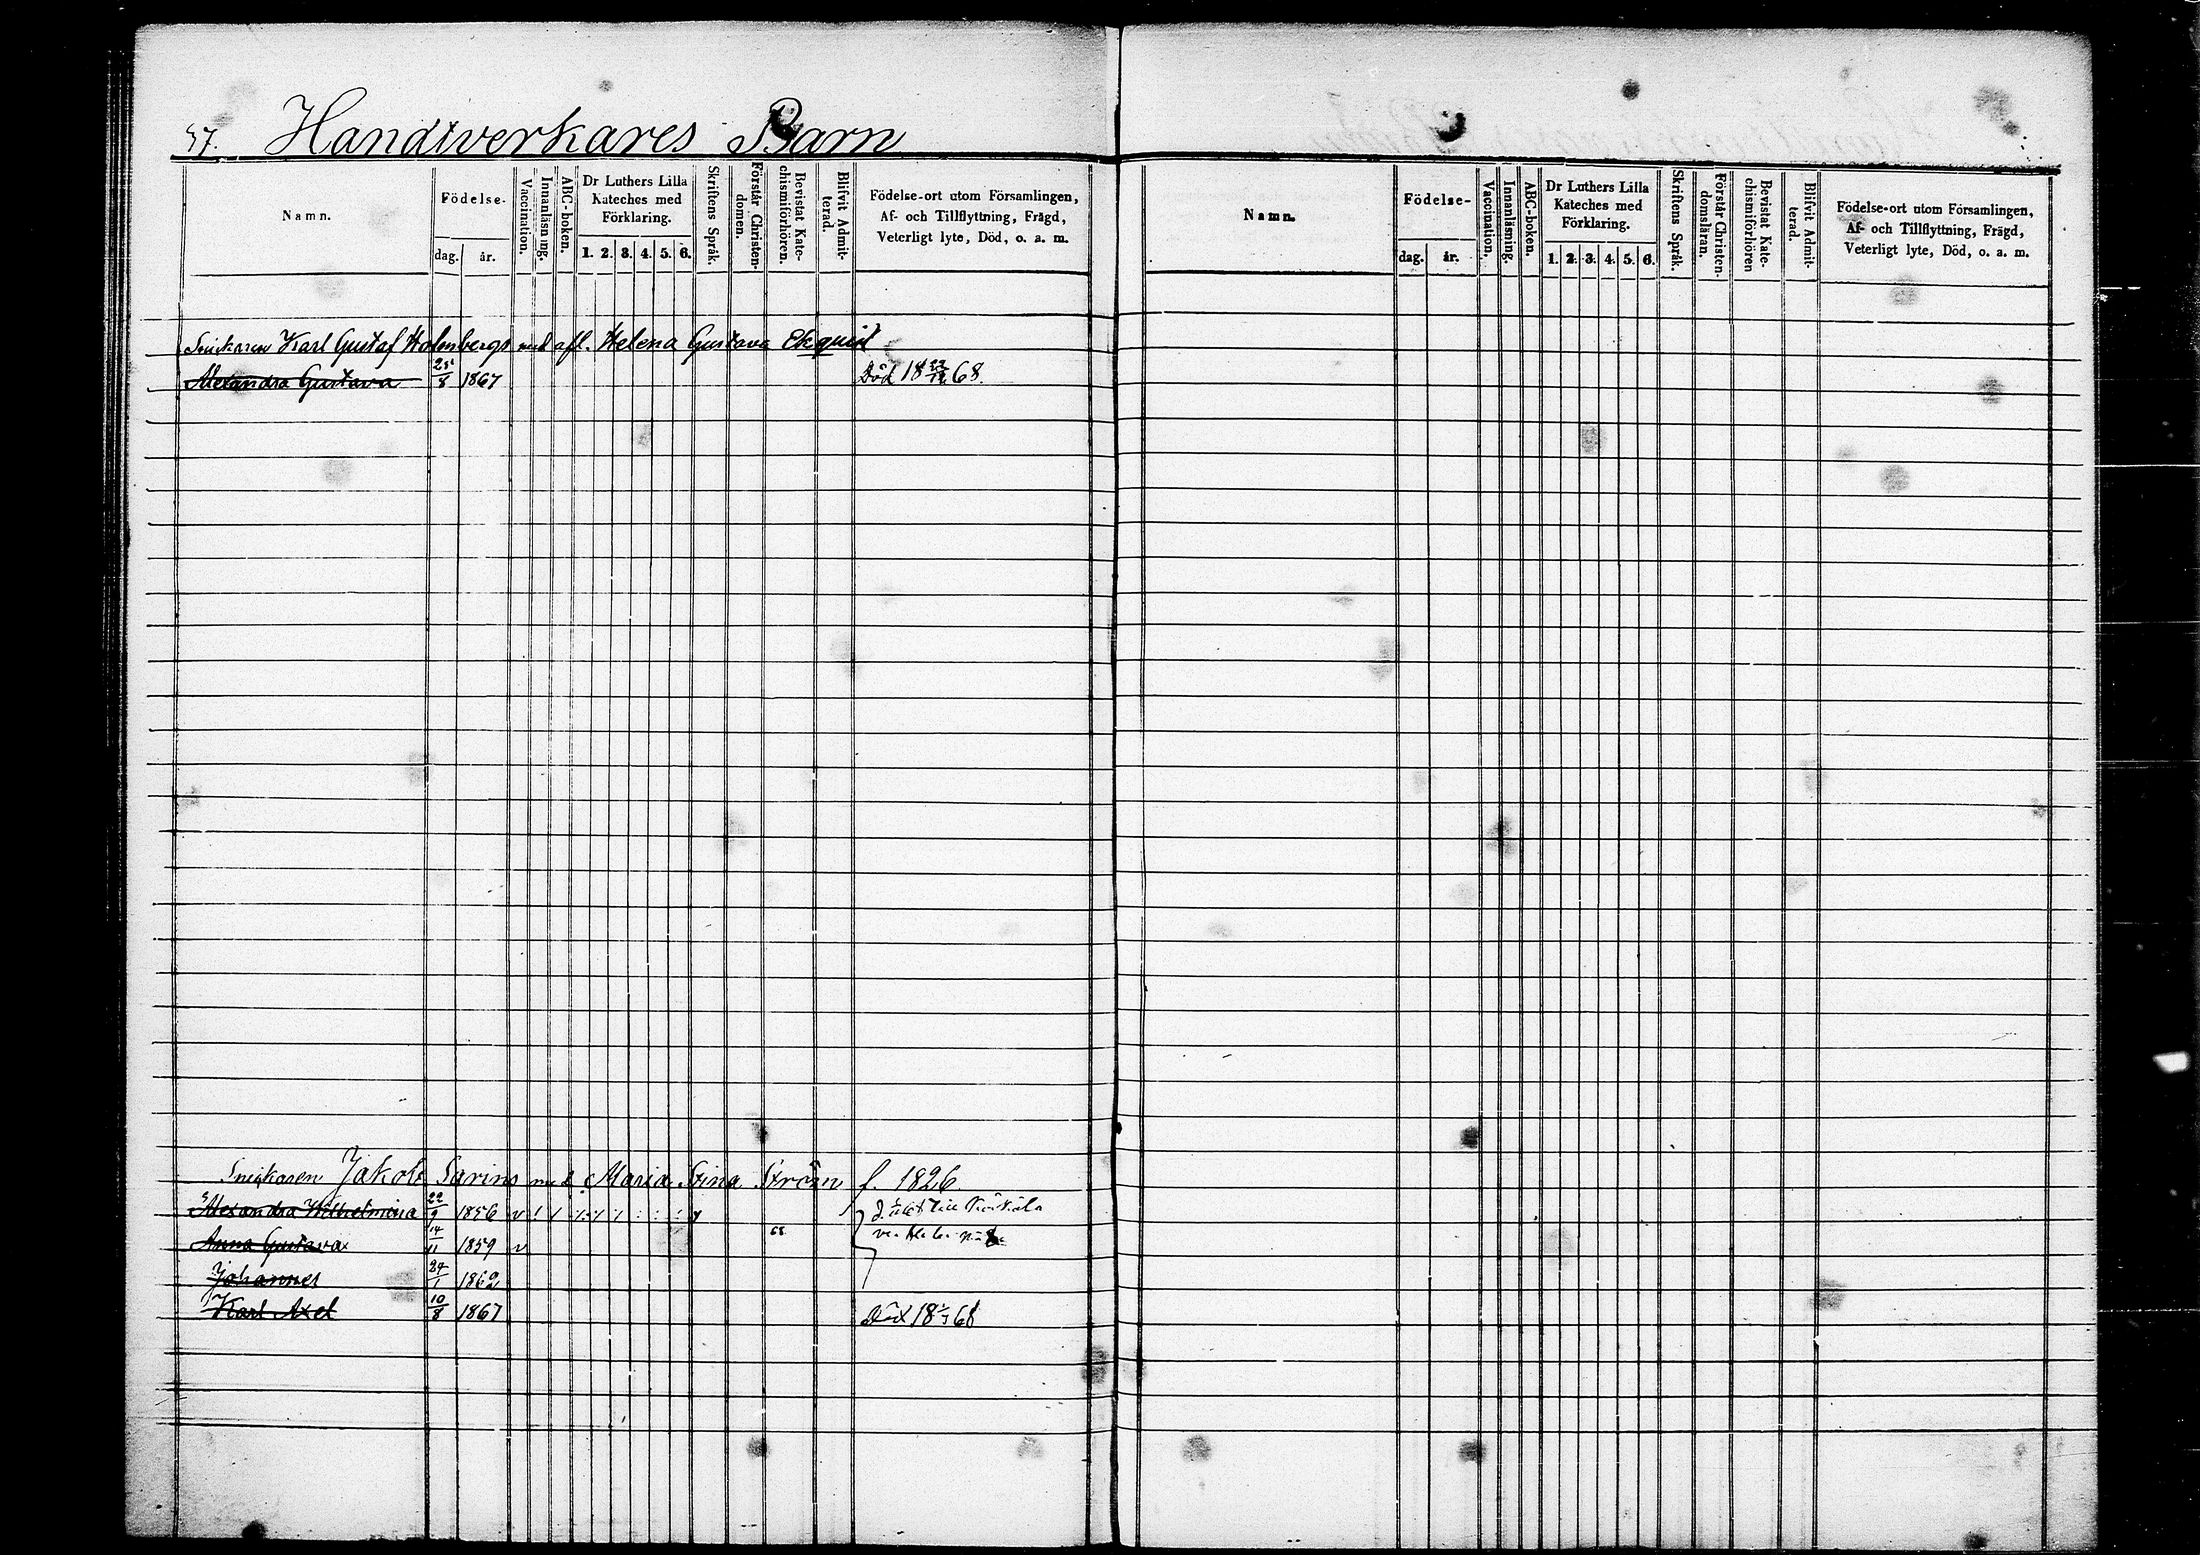 47. Handtverkares Barn
Namn. Födelse- dag. år. Vaccination. Innanläsning. ABC-boken. Dr Luthers Lilla Kateches med Förklaring. 1. 2. 3. 4. 5. 6. Skriftens Språk. Förstår Christendomen. Bevistat Katechismiförhören. Blifvit Admitterad. Födelse-ort utom Församlingen, Af- och Tillflyttning, Frägd, Veterligt lyte, Död, o. a. m.
Snickaren Karl Gustaf Holmbergs med afl. Helena Gustava Ekquist
Alexandra Gustava 25/8 1867 Död 18 22/12 68.
Snickaren Jakob Sarins med Maria Stina Ström f. 1826
Alexandra Wilhelmina 22/9 1856 v
Anna Gustava 14/11 1859 v 68
Johannes 24/1 1862
Karl Axel 10/8 1867 Död 18 68
Namn. Födelse- dag. år. Vaccination. Innanläsning. ABC-boken. Dr Luthers Lilla Kateches med Förklaring. 1. 2. 3. 4. 5. 6. Skriftens Språk. Förstår Christendomsläran. Bevistat Katechismiförhören Blifvit Admitterad. Födelse-ort utom Församlingen, Af- och Tillflyttning, Frägd, Veterligt lyte, Död, o. a. m.